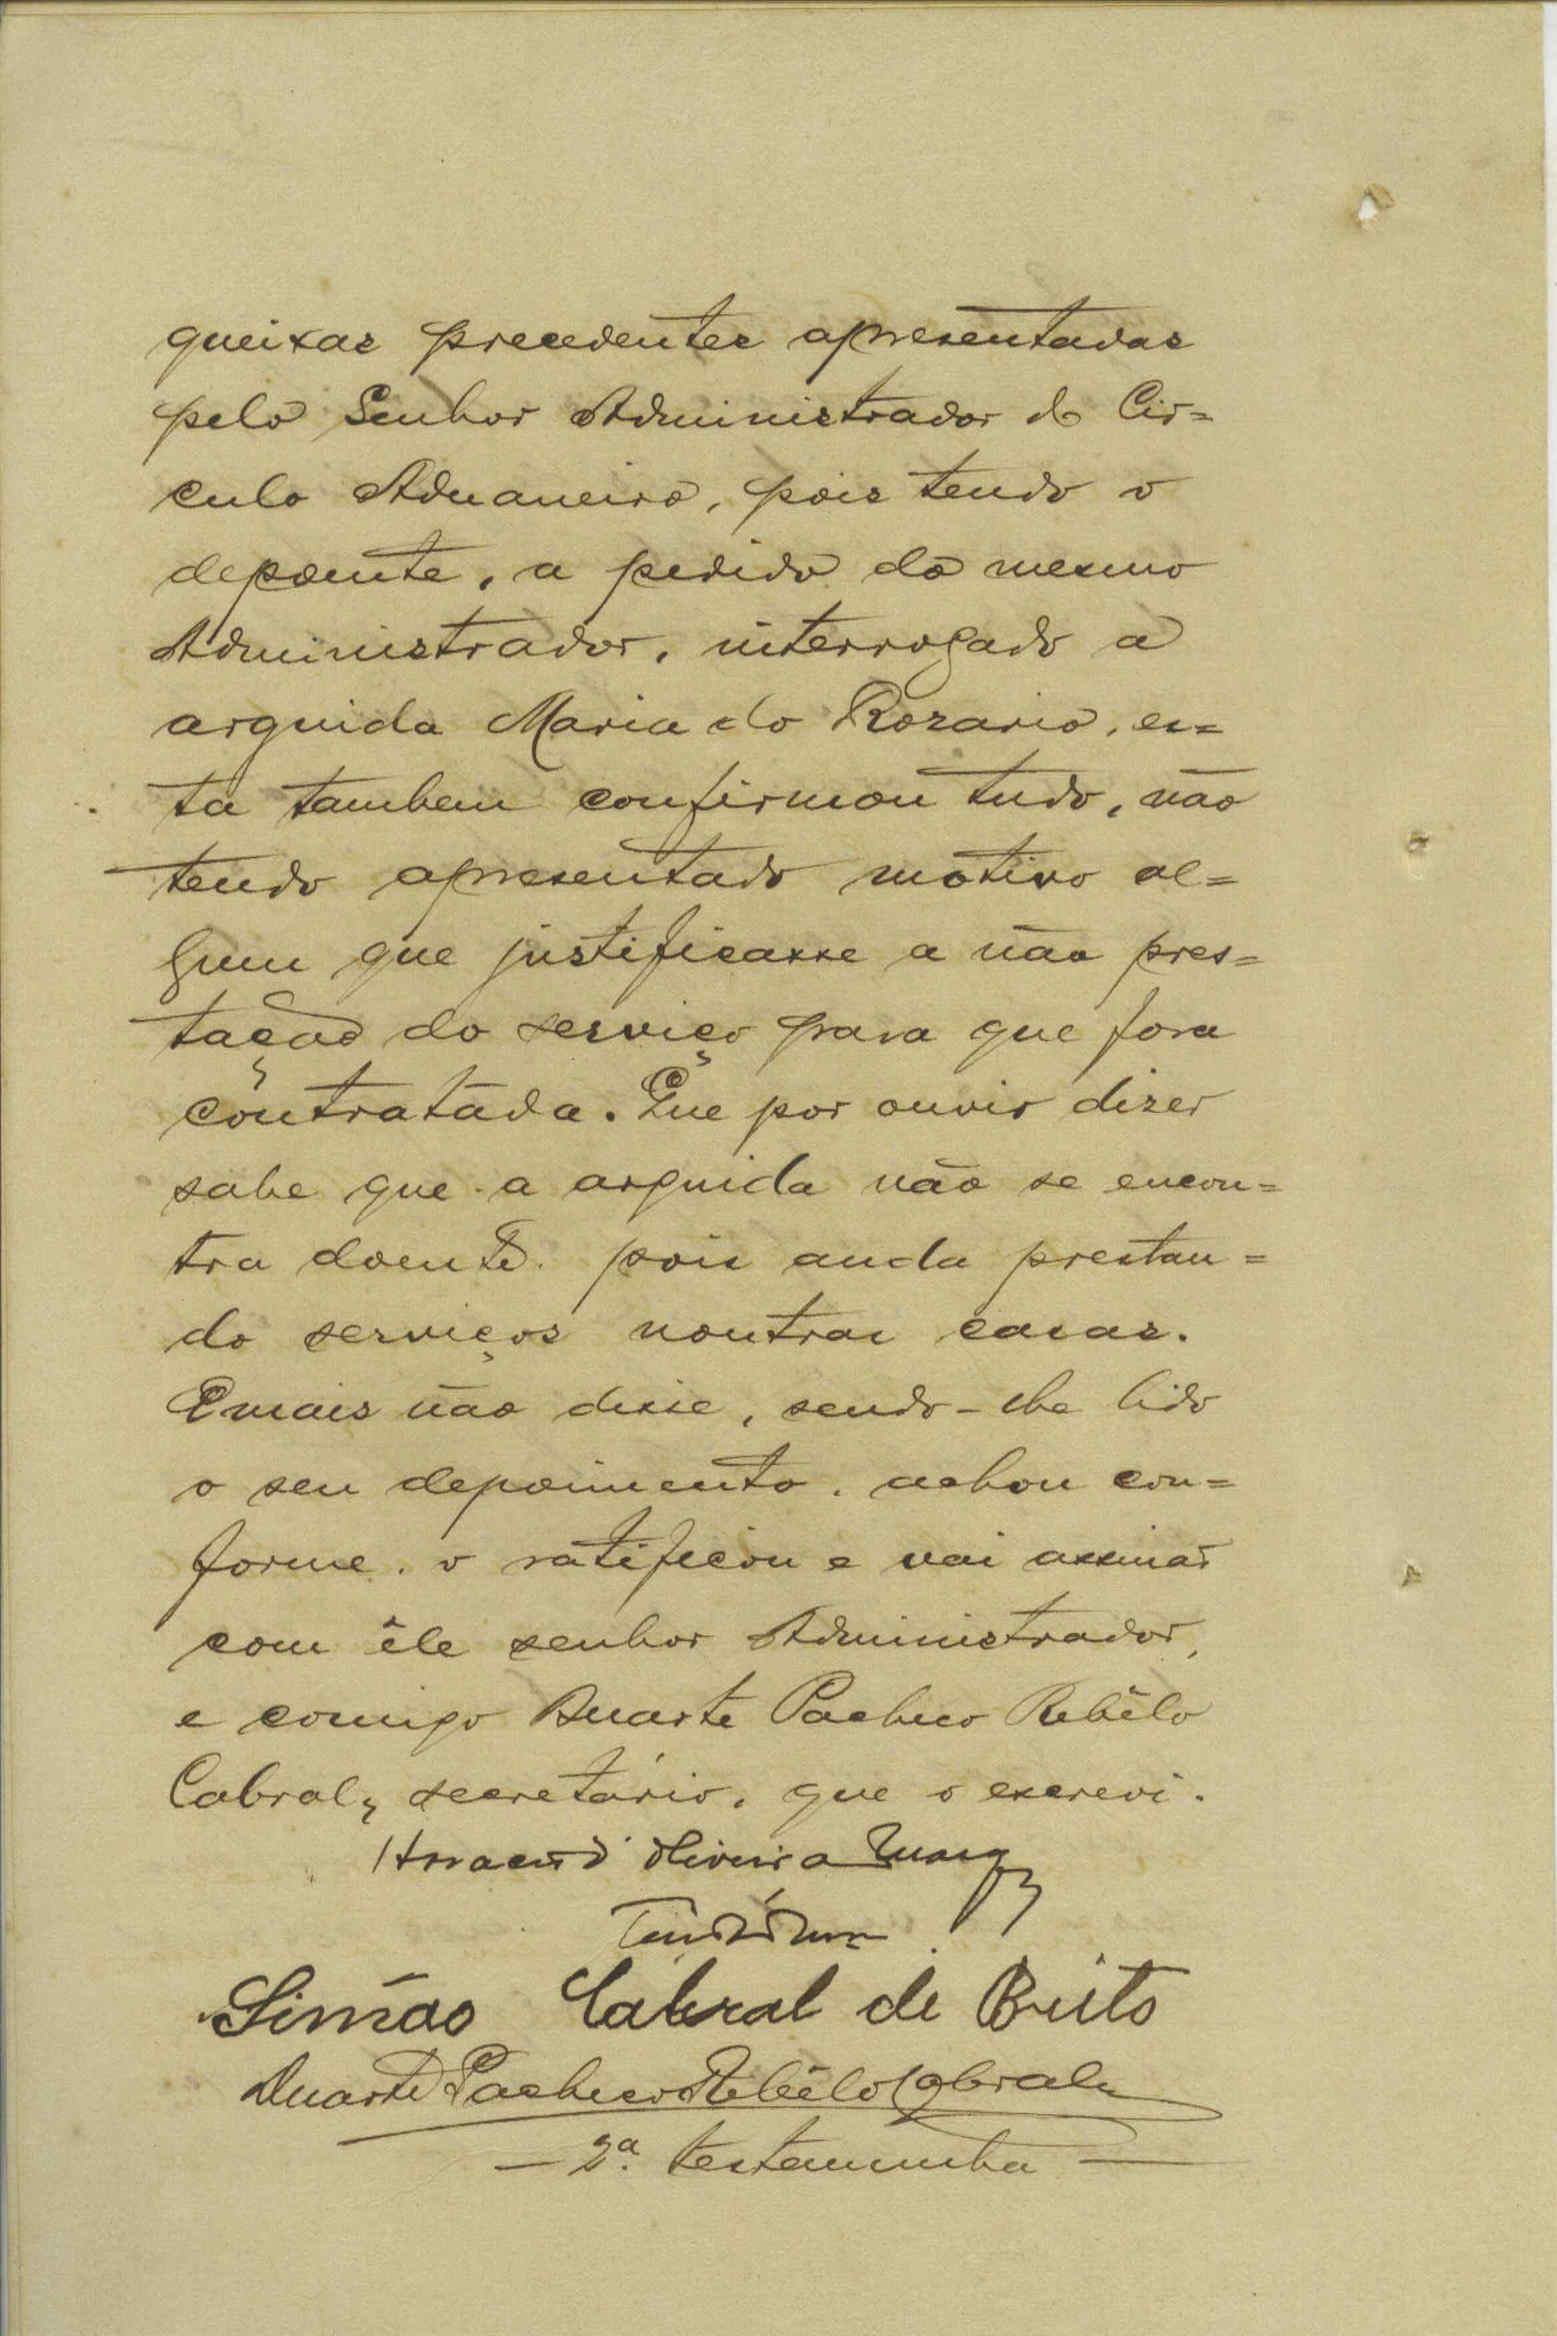 queixas precedentes apresentadas
pelo Senhor Administrador do Cir=
culo Aduaneiro, pois tendo o
depoente, a pedido do mesmo
Administrador, interrogado a
arguida Maria do Rozario, es=
ta tambem confirmou tudo, não
tendo apresentado motivo al=
gum que justificasse a não pres=
tação do serviço para que fora
contratada. Que por ouvir dizer
sabe que a arguida não se encon=
tra doente. pois anda prestan=
do serviços noutras casas.
E mais não disse, sendo-lhe lido
o seu depoimento, achou con=
forme, o ratificou e vai assinar
com êle senhor Administrador,
e comigo Duarte Pacheco Rebêlo
Cabral, secretário, que o escrevi.
Oliveira
Simão Cabral de Brito
Duarte Pacheco Rebêlo Cabral
— 2ª. testemunha —